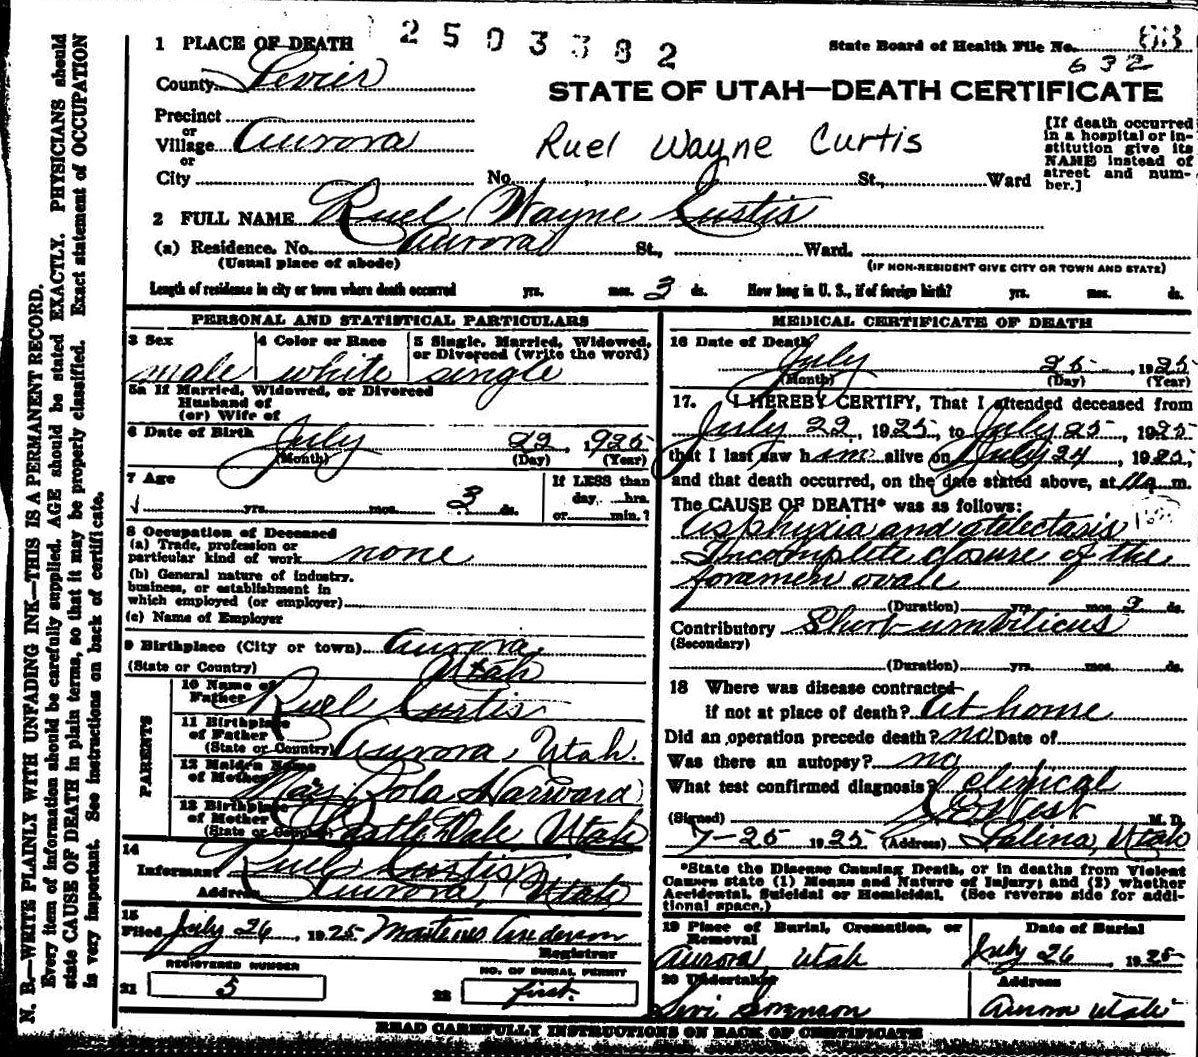 2503382
State Board of Health File No.
632
1 PLACE OF DEATH
County Sevier
STATE OF UTAH—DEATH CERTIFICATE
Precinct
or
Village Aurora
or
City No. St., Ward
Ruel Wayne Curtis
[If death occurred in a hospital or institution give its NAME instead of street and number.]
2 FULL NAME Ruel Wayne Curtis
(a) Residence. No. Aurora St., Ward.
(Usual place of abode)
(IF NON-RESIDENT GIVE CITY OR TOWN AND STATE)
Length of residence in city or town where death occurred yrs. mos. 3 ds. How long in U. S., if of foreign birth? yrs. mos. ds.
PERSONAL AND STATISTICAL PARTICULARS
3 Sex 4 Color or Race 5 Single, Married, Widowed,
or Divorced (write the word)
male white single
5a If Married, Widowed, or Divorced
Husband of
(or) Wife of
6 Date of Birth July 22, 1925
(Month) (Day) (Year)
7 Age If LESS than
yrs. mos. 3 ds. day, hrs.
or min.?
8 Occupation of Deceased
(a) Trade, profession or
particular kind of work none
(b) General nature of industry,
business, or establishment in
which employed (or employer)
(c) Name of Employer
9 Birthplace (City or town) Aurora,
(State or Country) Utah
PARENTS
10 Name of
Father Ruel Curtis
11 Birthplace
of Father
(State or Country) Aurora, Utah.
12 Maiden Name
of Mother Mary Rola Harward
13 Birthplace
of Mother
(State or Country) Castle Dale, Utah
14
Informant Ruel Curtis
Address Aurora, Utah
15
Filed July 26, 1925 Anderson
Registrar
REGISTERED NUMBER NO. OF BURIAL PERMIT
21 5 22 first.
MEDICAL CERTIFICATE OF DEATH
16 Date of Death
July 25, 1925
(Month) (Day) (Year)
17. I HEREBY CERTIFY, That I attended deceased from
July 22, 1925, to July 25, 1925
that I last saw him alive on July 24, 1925,
and that death occurred, on the date stated above, at 11a m.
The CAUSE OF DEATH* was as follows:
Asphyxia and atelectasis
Incomplete closure of the
foramen ovale
(Duration) yrs. mos. 3 ds.
Contributory Short umbilicus
(Secondary)
(Duration) yrs. mos. ds.
18 Where was disease contracted
if not at place of death? At home
Did an operation precede death? no Date of
Was there an autopsy? no
What test confirmed diagnosis? Clinical
(Signed) M. D.
7-25 1925 (Address) Salina, Utah
*State the Disease Causing Death, or in deaths from Violent
Causes state (1) Means and Nature of Injury; and (2) whether
Accidental, Suicidal or Homicidal. (See reverse side for addi-
tional space.)
19 Place of Burial, Cremation, or Date of Burial
Removal
Aurora, Utah July 26, 1925
20 Undertaker Address
Levi Sorenson Aurora Utah
READ CAREFULLY INSTRUCTIONS ON BACK OF CERTIFICATE
N. B.—WRITE PLAINLY WITH UNFADING INK—THIS IS A PERMANENT RECORD.
Every item of information should be carefully supplied. AGE should be stated EXACTLY. PHYSICIANS should
state CAUSE OF DEATH in plain terms, so that it may be properly classified. Exact statement of OCCUPATION
is very important. See Instructions on back of certificate.